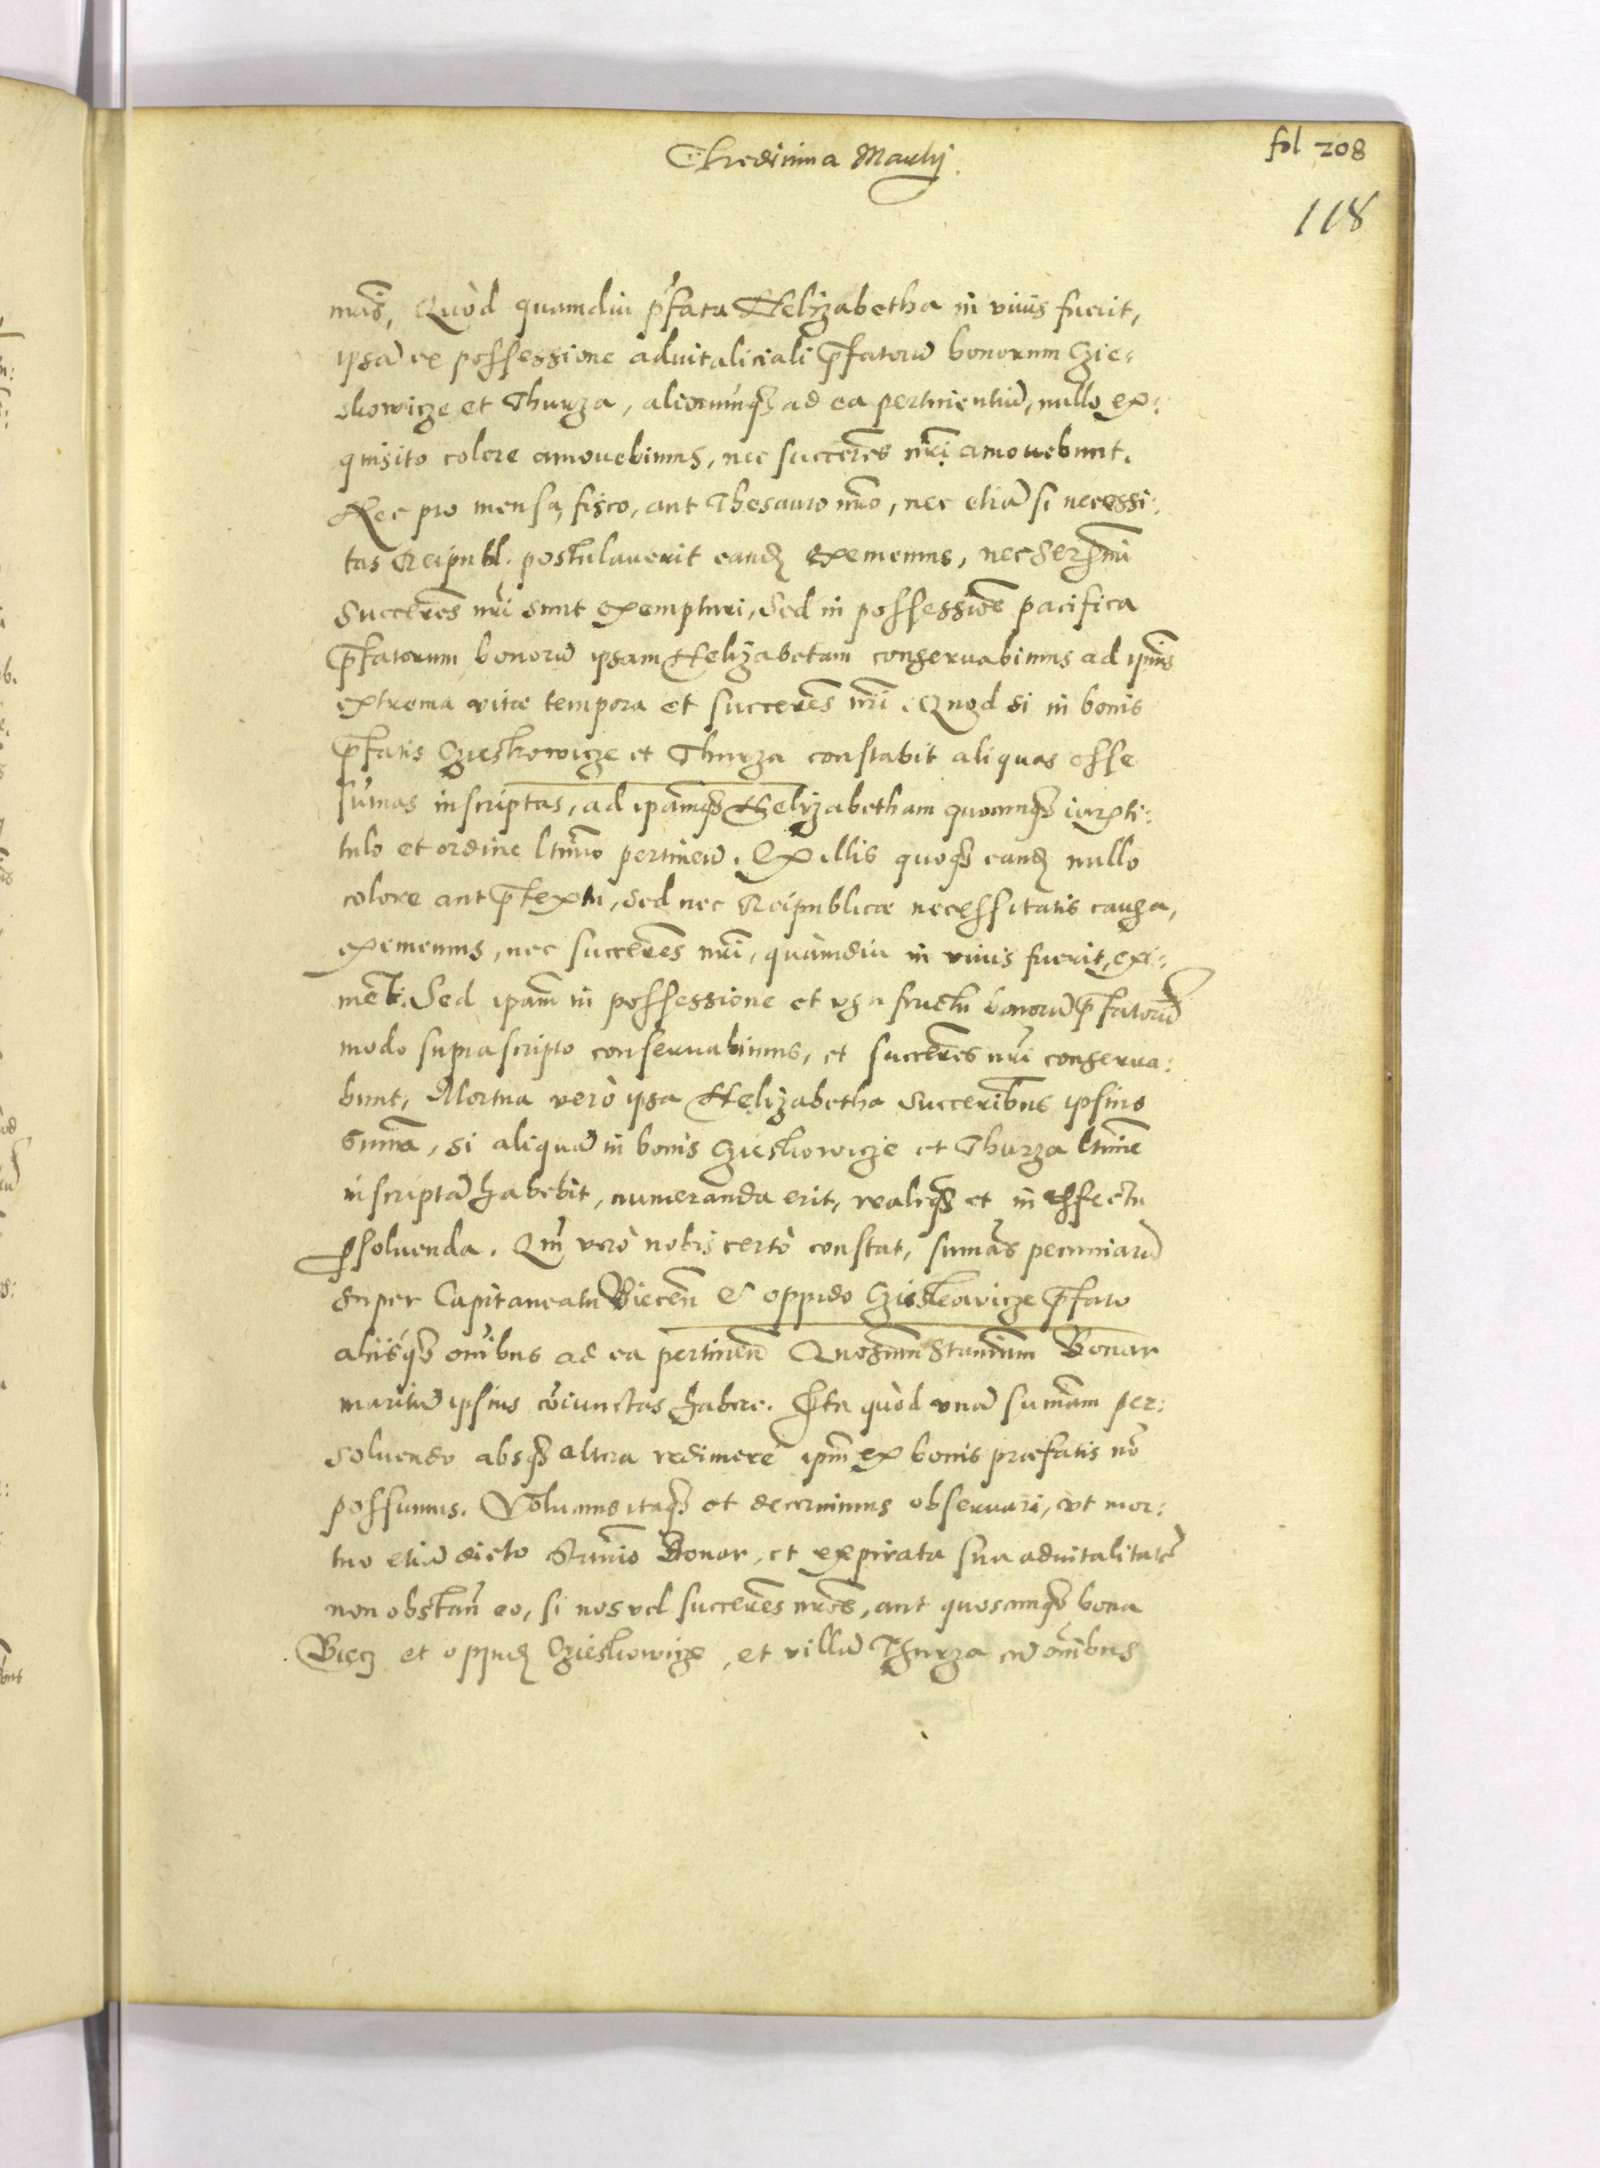 fol 208
118
mus, Quòd quamdiu p̃fata Helyzabetha in viuis fuerit,
ipsã ex possessione aduitaliciali p̃fatorũ bonorum Czie:
zkowicze et Thurza, aliorumq₃ ad ea pertinentiũ, nullo ex:
quisito colore amouebimus, nec succeres nr̃i amouebunt.
Nec pro mensa, fisco, aut Thesauro nr̃o, nec etiã si necessi:
tas Reipubl. postulauerit eand₃ eximemus, nec Sermi
Succeres nr̃i sunt exempturi, Sed in possessioẽ pacifica
p̃fatorum bonorũ ipsam Helizabetam conseruabimus ad ipius
extrema vitæ tempora et succeres nr̃i. Quod si in bonis
p̃fatis Czieskowicze et Thurza constabit aliquas esse
sum̃as inscriptas, ad ip̃amq₃ Helyzabetham quocunq₃ iur
tulo et ordine ltimo pertineñ. Ex illis quoq₃ eand₃ nullo
colore aut p̃textu, sed nec Reipublicæ necessitatis causa,
eximemus, nec succeres nr̃i, quàmdiu in viuis fuerit, exi:
ment. Sed ip̃am in possessione et vsu fructu bonorũ p̃fatorũ
modo suprascripto conseruabimus, et succeres nr̃i conserua:
bunt, Mortua verò ipsa Helizabetha Succeribus ipsius
Sum̃a, si aliquã in bonis Czieskowicze et Thurza ltime
inscriptã habebit, numeranda erit, realiq₃ et in effectu
p̱soluenda. Qm̃ verò nobis certò constat, sum̃as pecuniarũ
super Capitaneatu Biecen̄ & oppido Czieskowicze p̃fato
aliisq₃ om̃ibus ad ea pertineñ Stanium Bonar
maritũ ipsius cõiunctas habere. Ita quòd vnã sum̃am per:
soluendo absq₃ altera redimere ipm̃ ex bonis præfatis nõ
possumus. Volumus itaq₃ et decernimus obseruari, vt mor:
tuo etiã dicto Stanio Bonar, et expirata sua aduitalitate
non obstañ eo, si nos vel succeres nr̃os, aut quoscunq₃ bona
Biecz et oppid₃ Czieskowicze, et villã Thurza cũ om̃ibus